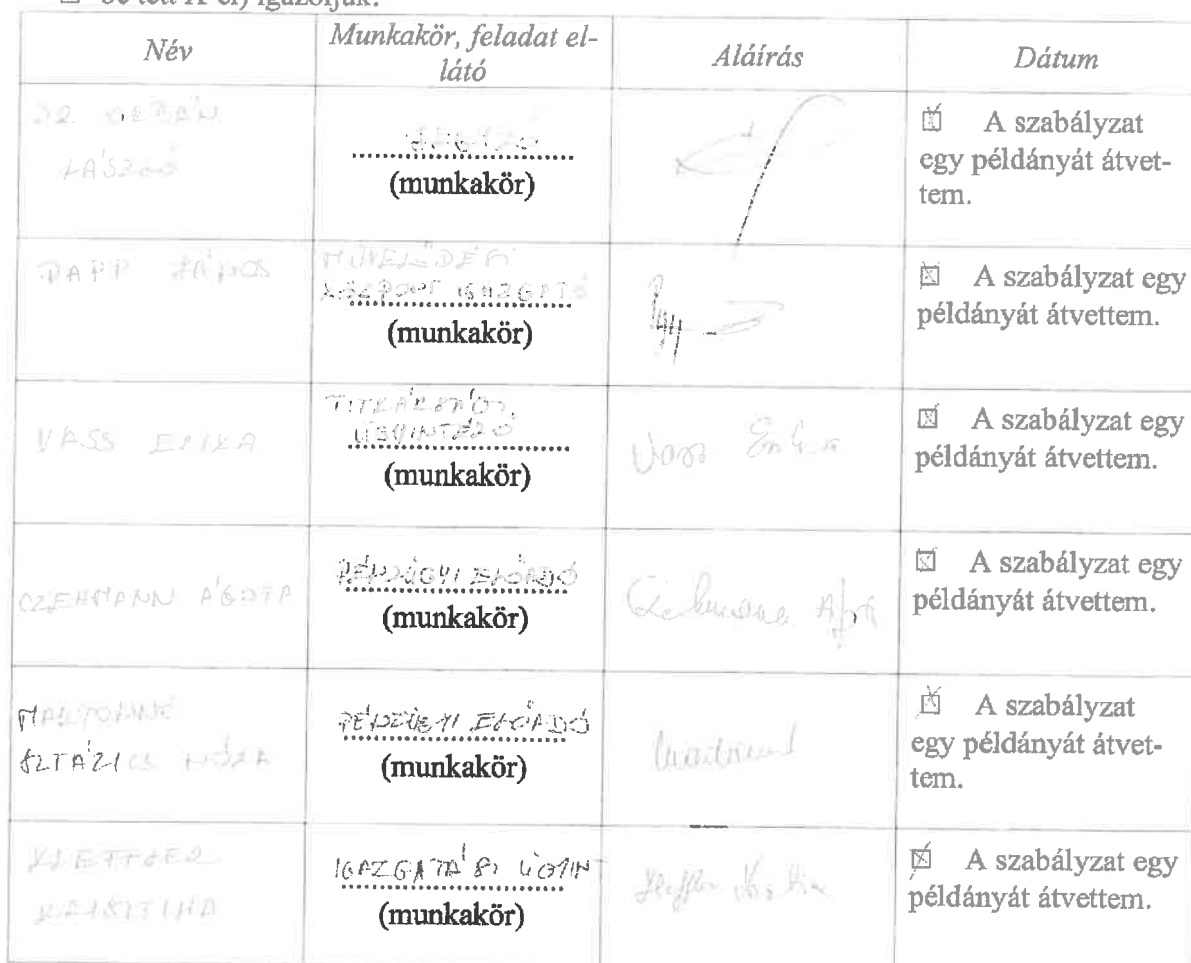 be tett X-el) igazoljuk:
Név
Munkakör, feladat el-
látó
Aláírás
Dátum
LÁSZLÓ
JEGYZŐ
(munkakör)
A szabályzat
egy példányát átvet-
tem.
PAPP JÁNOS
MŰVELŐDÉSI
KÖZPONT IGAZGATÓ
(munkakör)
A szabályzat egy
példányát átvettem.
VASS ERIKA
TITKÁRSÁGI
ÜGYINTÉZŐ
(munkakör)
Vass Erika
A szabályzat egy
példányát átvettem.
CZEHMANN ÁGOTA
PÉNZÜGYI ELŐADÓ
(munkakör)
Czehmann Ágota
A szabályzat egy
példányát átvettem.
NÓRA
PÉNZÜGYI ELŐADÓ
(munkakör)
A szabályzat
egy példányát átvet-
tem.
KRISZTINA
IGAZGATÁSI ÜGYIN
(munkakör)
A szabályzat egy
példányát átvettem.